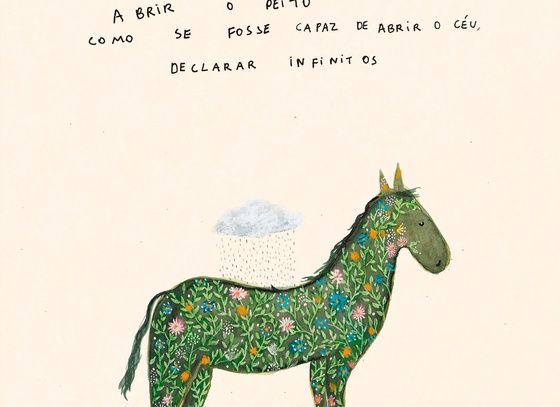 ABRIR O PEITO
COMO SE FOSSE CAPAZ DE ABRIR O CÉU,
DECLARAR INFINITOS